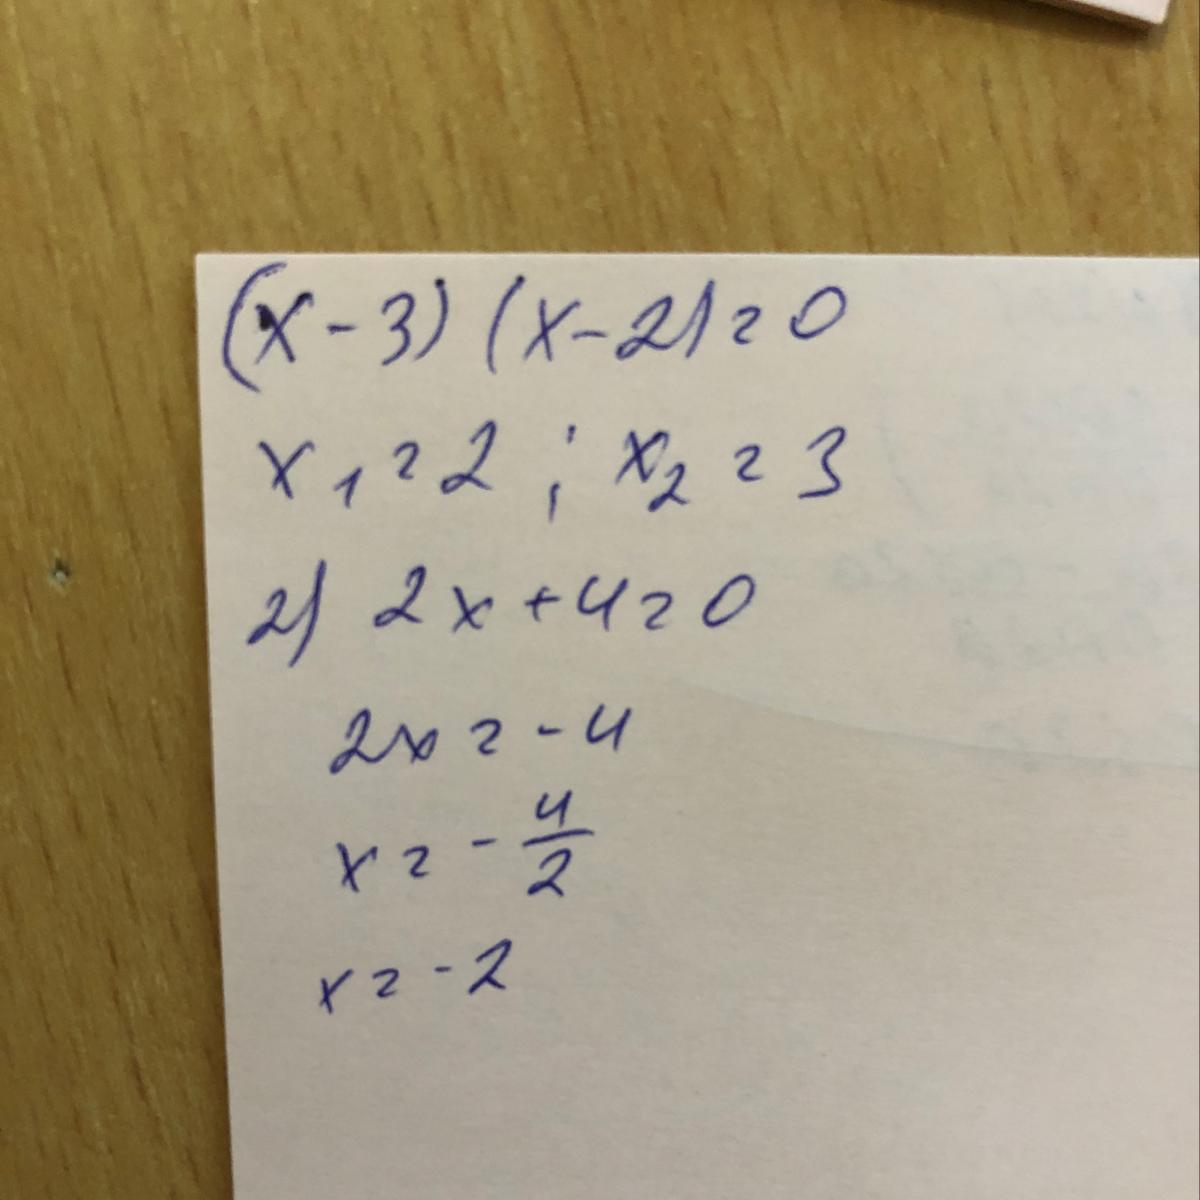 (x-3) (x-2)=0
x₁=2 ; x₂=3
2) 2x+4=0
2x=-4
x=-4/2
x=-2